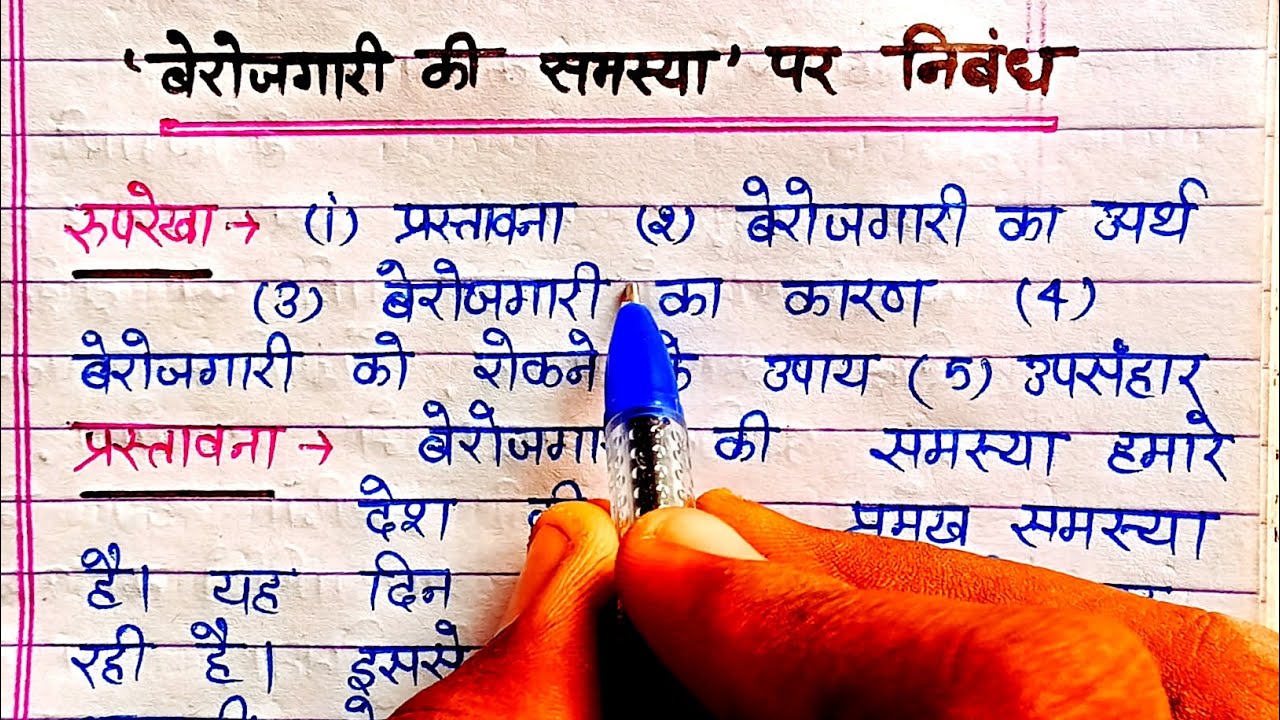 'बेरोजगारी की समस्या' पर निबंध
रुपरेखा → (1) प्रस्तावना (२) बेरोजगारी का अर्थ
(3) बेरोजगारी का कारण (4)
बेरोजगारी को रोकने के उपाय (5) उपसंहार
प्रस्तावना → की समस्या हमारे
देश प्रमुख समस्या
है। यह दिन
रही है। इससे